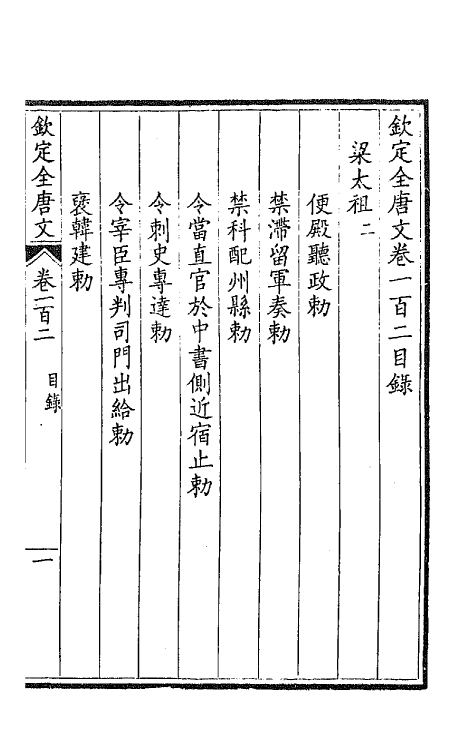 欽定全唐文卷一百二目錄
梁太祖二
便殿聽政勅
禁滯留軍奏勅
禁科配州縣勅
令當直官於中書側近宿止勅
令刺史專達勅
令宰臣專判司門出給勅
襃韓建勅
欽定全唐文 卷一百二 目錄 一